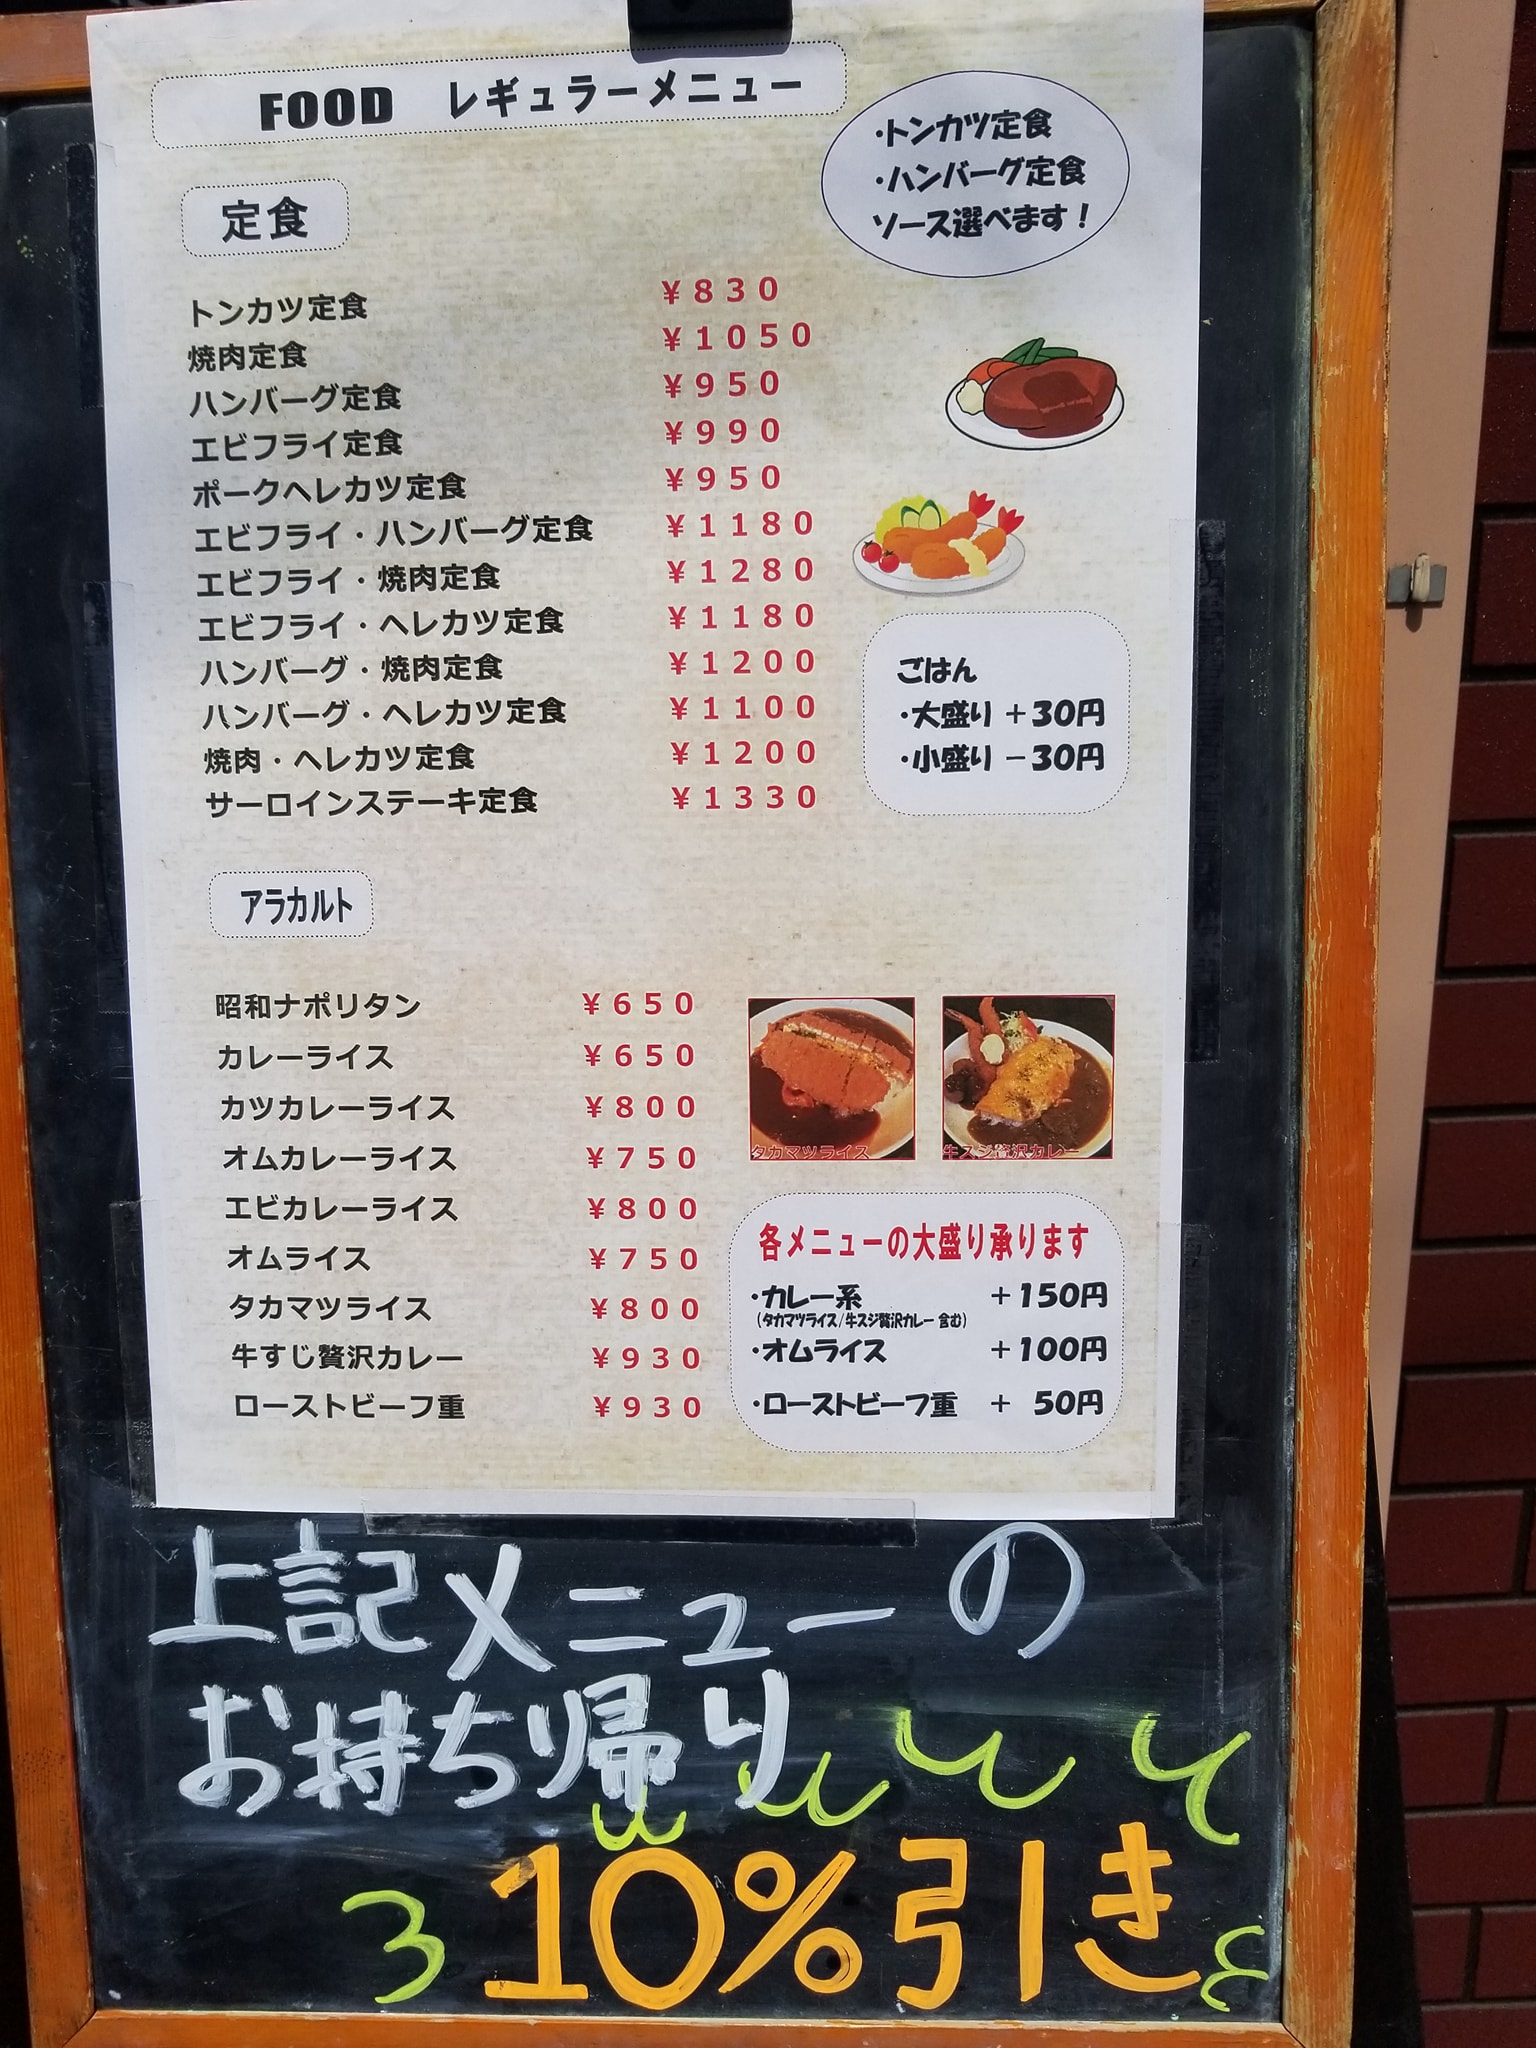 FOOD レギュラーメニュー
・トンカツ定食
・ハンバーグ定食
ソース選べます!
定食
トンカツ定食 ¥830
焼肉定食 ¥1050
ハンバーグ定食 ¥950
エビフライ定食 ¥990
ポークヘレカツ定食 ¥950
エビフライ・ハンバーグ定食 ¥1180
エビフライ・焼肉定食 ¥1280
エビフライ・ヘレカツ定食 ¥1180
ハンバーグ・焼肉定食 ¥1200
ハンバーグ・ヘレカツ定食 ¥1100
焼肉・ヘレカツ定食 ¥1200
サーロインステーキ定食 ¥1330
ごはん
・大盛り +30円
・小盛り -30円
アラカルト
昭和ナポリタン ¥650
カレーライス ¥650
カツカレーライス ¥800
オムカレーライス ¥750
エビカレーライス ¥800
オムライス ¥750
タカマツライス ¥800
牛すじ贅沢カレー ¥930
ローストビーフ重 ¥930
タカマツライス
牛スジ贅沢カレー
各メニューの大盛り承ります
・カレー系 +150円
(タカマツライス/牛スジ贅沢カレー 含む)
・オムライス +100円
・ローストビーフ重 + 50円
上記メニューの
お持ち帰り
10%引き